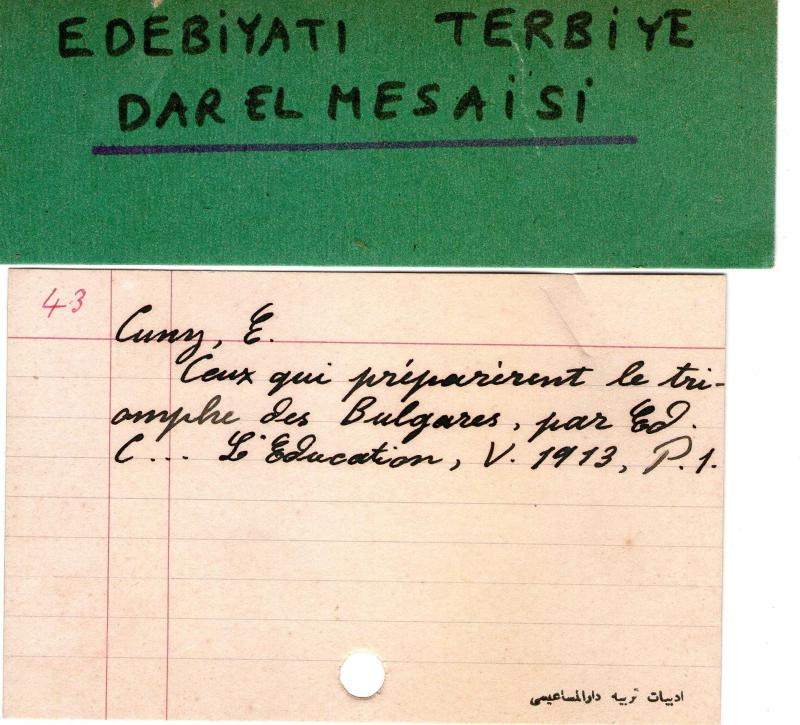 EDEBİYATI TERBİYE
DAR EL MESAİSİ
43
Cuny, E.
Ceux qui préparèrent le tri-
omphe des Bulgares, par Ed.
C... L'Education, V. 1913, P. 1.
ادبيات تربيه دارالمساعيسى